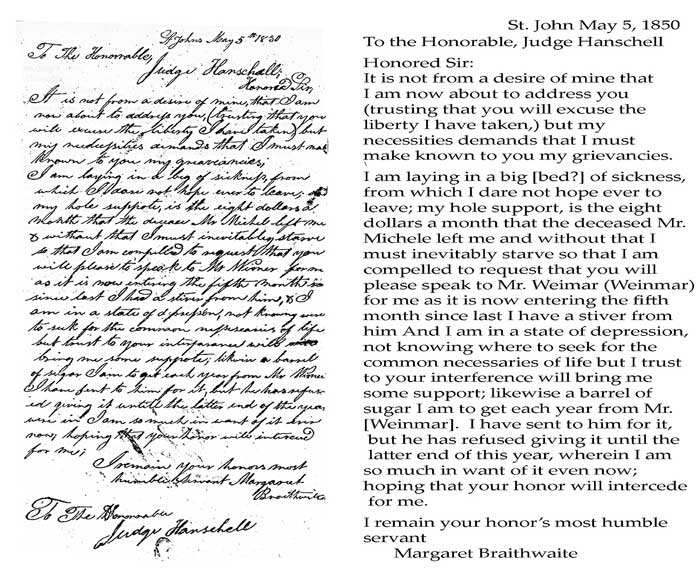 St Johns May 5th 1830
To The Honorrable,
Judge Hanschell;
Honored Sir,
It is not from a desire of mine, that I am
now about to address you, (trusting that you
will excuse the liberty I have taken) but
my necessities demands that I must mak
known to you my greaviancies;
I am laying in a beg of sickness, from
which I dare not hope ever to leave;
my hole suppote, is the eight dollars a
month that the decease Mr Michel left me
& without that I must inevitabley starve
so that I am compelled to request that you
will please to speak to Mr Wimer for m
as it is now entering the fifth month
since last I had a stiver from him, & I
am in a state of not knowing were
to seek for the common necessaries of life
but trust to your interfarance will
bring me some suppote; likewise a barrel
of sugar I am to get each year from Mr
I have sent to him for it, but he has refus
ed giving it untill the latter end of the year
were in I am so much in want of it
now; hoping that your honor will interced
for me;
I remain your honors most
humble servant Margaret
Braithwite
To The Honorable
Judge Hanschell
St. John May 5, 1850
To the Honorable, Judge Hanschell
Honored Sir:
It is not from a desire of mine that
I am now about to address you
(trusting that you will excuse the
liberty I have taken,) but my
necessities demands that I must
make known to you my grievancies.
I am laying in a big [bed?] of sickness,
from which I dare not hope ever to
leave; my hole support, is the eight
dollars a month that the deceased Mr.
Michele left me and without that I
must inevitably starve so that I am
compelled to request that you will
please speak to Mr. Weimar (Weinmar)
for me as it is now entering the fifth
month since last I have a stiver from
him And I am in a state of depression,
not knowing where to seek for the
common necessaries of life but I trust
to your interference will bring me
some support; likewise a barrel of
sugar I am to get each year from Mr.
[Weinmar].  I have sent to him for it,
but he has refused giving it until the
latter end of this year, wherein I am
so much in want of it even now;
hoping that your honor will intercede
for me.
I remain your honor's most humble
servant
Margaret Braithwaite